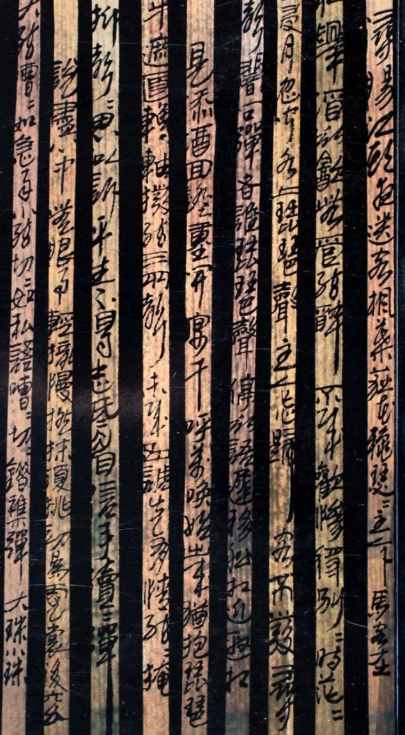 潯陽江頭夜送客楓葉荻花秋瑟〻主人下馬客在
船舉酒欲飲無管絃醉不成歡慘將別〻時茫〻
浸月忽聞水上琵琶聲主人忘歸客不發尋
聲暗問彈者誰琵琶聲停欲語遲移船相近邀相
見添酒回燈重開宴千呼萬喚始出來猶抱琵琶
半遮面轉軸撥絃三兩聲未成曲調先有情絃〻掩
抑聲〻思似訴平生不得志低眉信手續〻彈
說盡心中無限事輕攏慢撚抹復挑初為霓裳後六幺
大絃嘈〻如急雨小絃切〻如私語嘈〻切〻錯雜彈大珠小珠